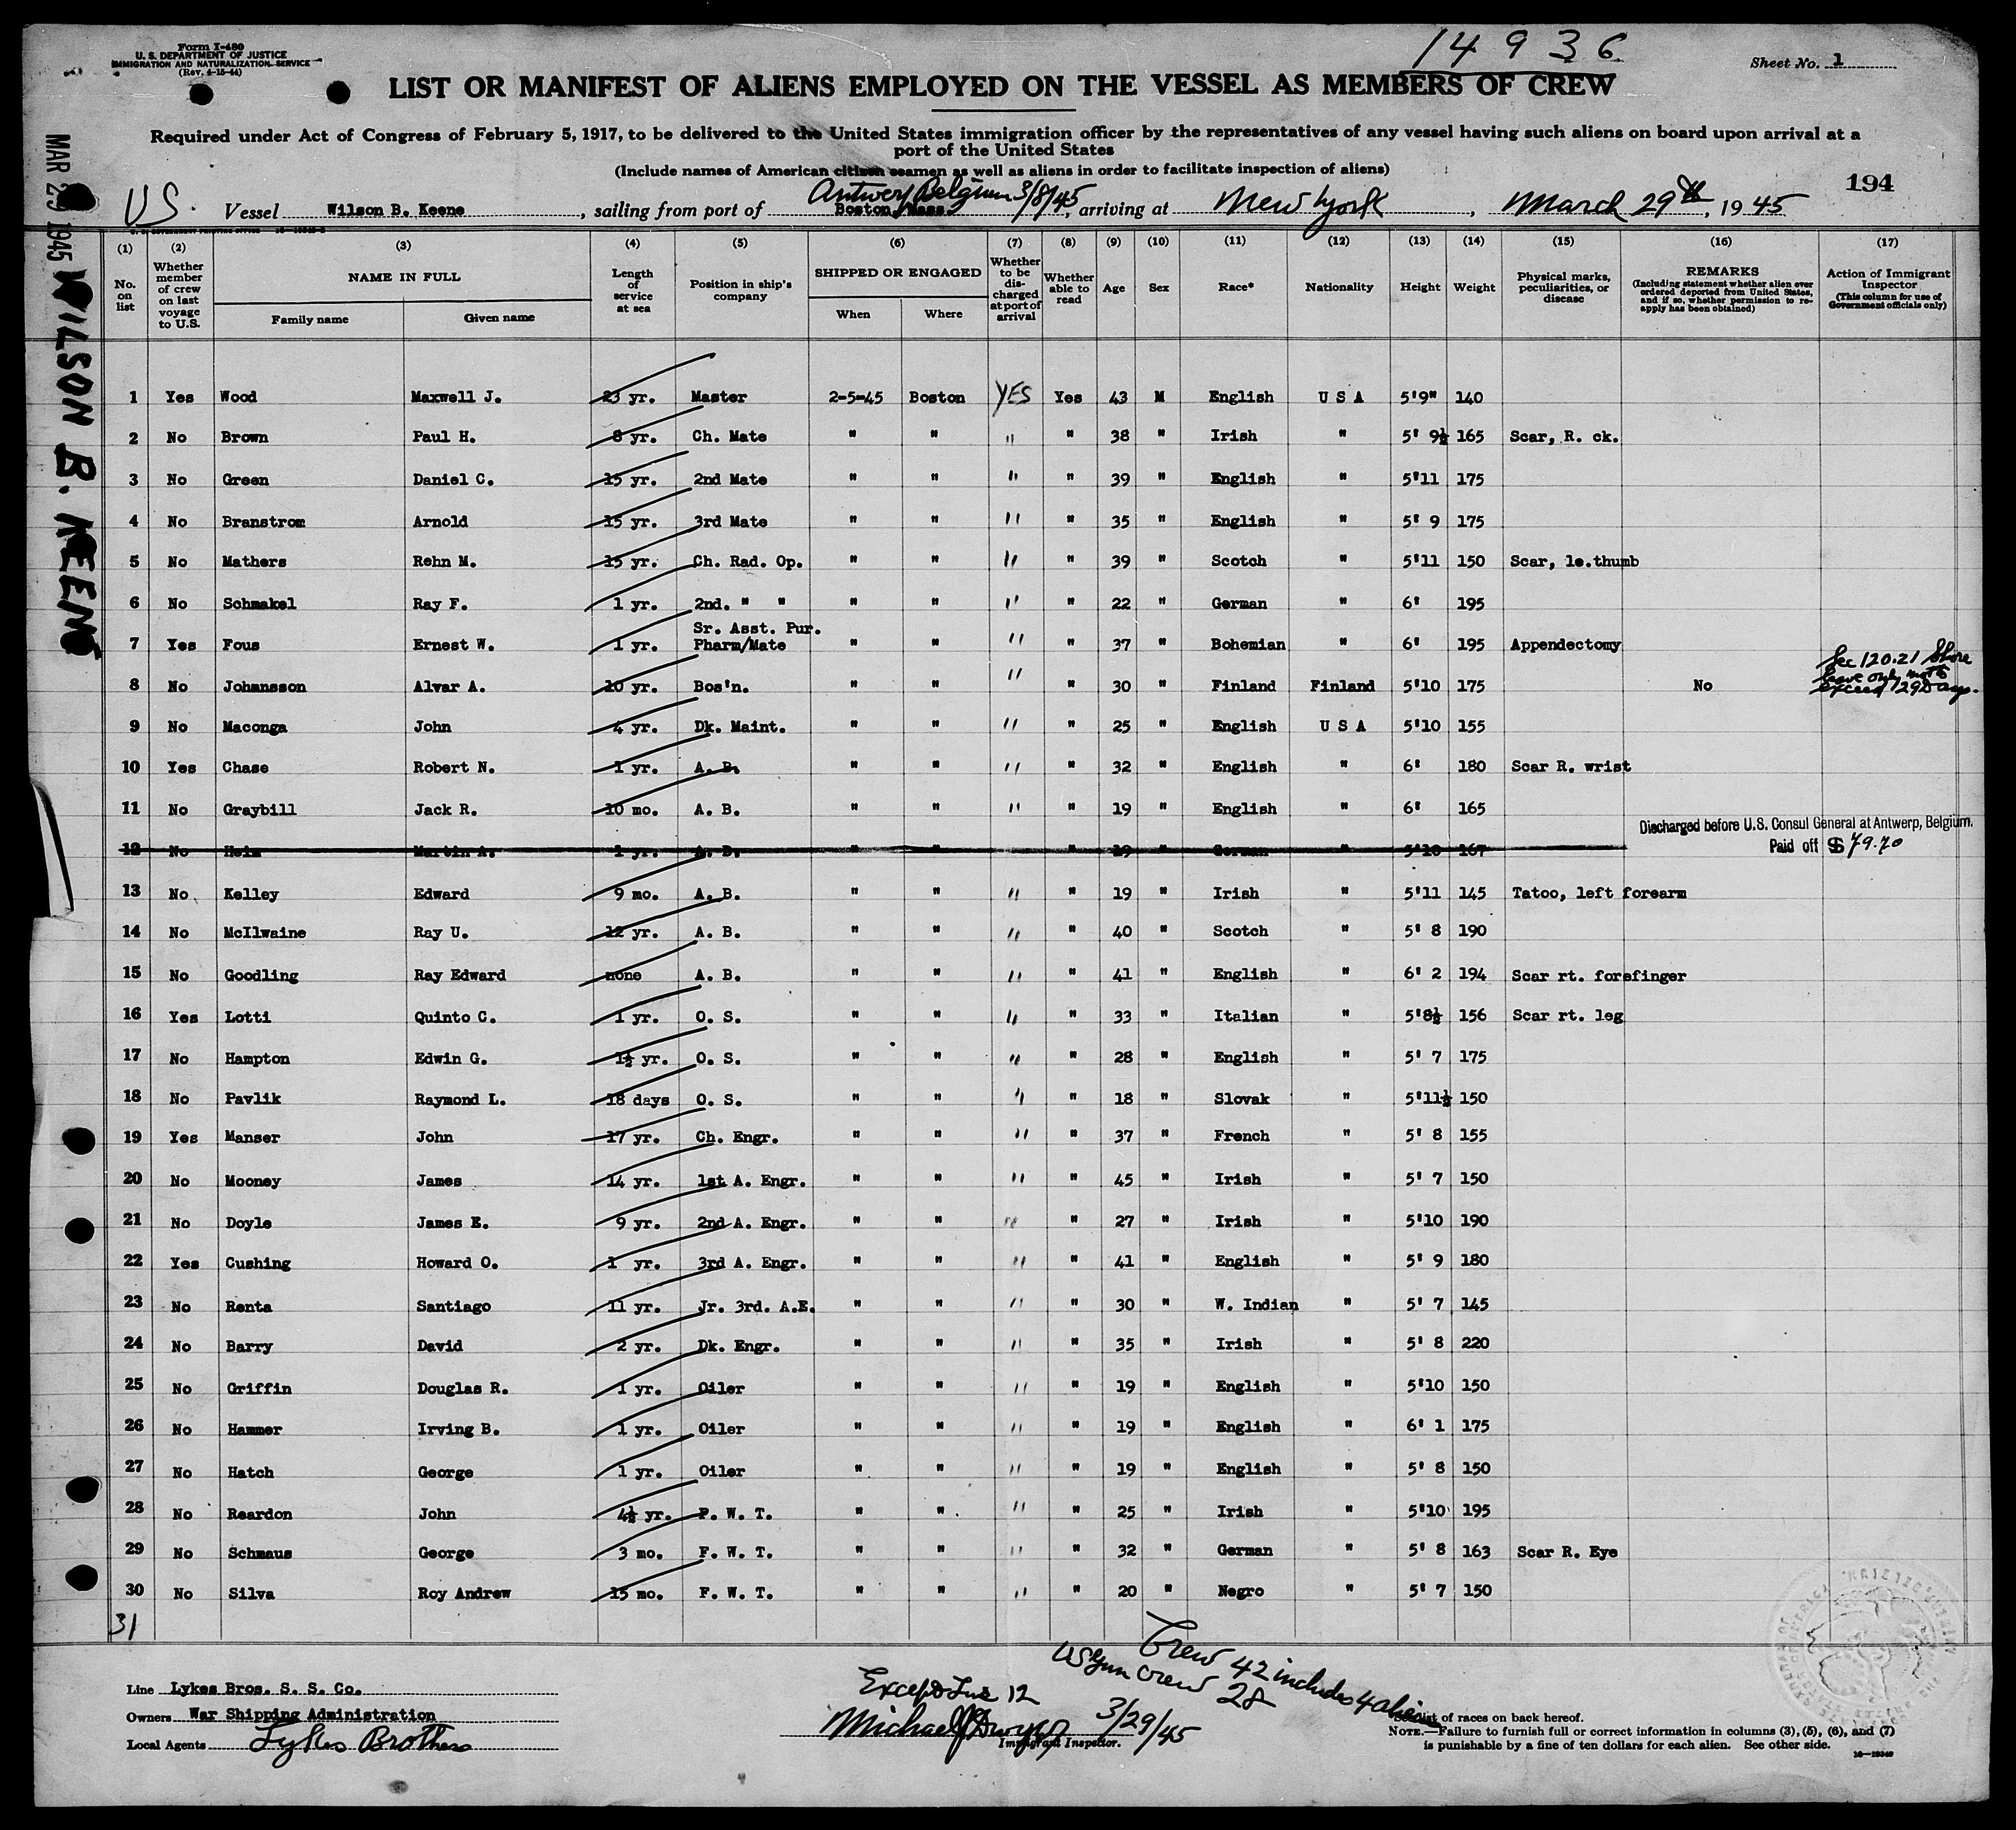 Form I-480
U. S. DEPARTMENT OF JUSTICE
IMMIGRATION AND NATURALIZATION SERVICE
(Rev. 4-15-44)
14936
Sheet No. 1
LIST OR MANIFEST OF ALIENS EMPLOYED ON THE VESSEL AS MEMBERS OF CREW
Required under Act of Congress of February 5, 1917, to be delivered to the United States immigration officer by the representatives of any vessel having such aliens on board upon arrival at a
port of the United States
(Include names of American citizen seamen as well as aliens in order to facilitate inspection of aliens)
194
Antwerp Belgium 3/8/45
US. Vessel Wilson B. Keene, sailing from port of Boston, Mass., arriving at New York, March 29th, 1945
MAR 29 1945 WILSON B. KEENE
(1) (2) (3) (4) (5) (6) (7) (8) (9) (10) (11) (12) (13) (14) (15) (16) (17)
No. on list
Whether member of crew on last voyage to U.S.
NAME IN FULL
Family name Given name
Length of service at sea
Position in ship's company
SHIPPED OR ENGAGED
When Where
Whether to be discharged at port of arrival
Whether able to read
Age
Sex
Race*
Nationality
Height
Weight
Physical marks, peculiarities, or disease
REMARKS
(Including statement whether alien ever ordered deported from United States, and if so, whether permission to reapply has been obtained)
Action of Immigrant Inspector
(This column for use of Government officials only)
1 Yes Wood Maxwell J. 23 yr. Master 2-5-45 Boston YES Yes 43 M English U S A 5'9" 140
2 No Brown Paul H. 8 yr. Ch. Mate " " " " 38 " Irish " 5' 9½ 165 Scar, R. ck.
3 No Green Daniel C. 15 yr. 2nd Mate " " " " 39 " English " 5'11 175
4 No Branstrom Arnold 15 yr. 3rd Mate " " " " 35 " English " 5' 9 175
5 No Mathers Rehn M. 15 yr. Ch. Rad. Op. " " " " 39 " Scotch " 5'11 150 Scar, le.thumb
6 No Schmakel Ray F. 1 yr. 2nd. " " " " " " 22 " German " 6' 195
Sr. Asst. Pur.
7 Yes Fous Ernest W. 1 yr. Pharm/Mate " " " " 37 " Bohemian " 6' 195 Appendectomy
8 No Johansson Alvar A. 10 yr. Bos'n. " " " " 30 " Finland Finland 5'10 175 No Sec 120.21 Shore leave only not to exceed 29 Days.
9 No Maconga John 4 yr. Dk. Maint. " " " " 25 " English U S A 5'10 155
10 Yes Chase Robert N. 1 yr. A. B. " " " " 32 " English " 6' 180 Scar R. wrist
11 No Graybill Jack R. 10 mo. A. B. " " " " 19 " English " 6' 165
Discharged before U.S. Consul General at Antwerp, Belgium.
Paid off $79.70
12 No Heim Martin A. 1 yr. A. B. " " " 19 " German " 5'10 167
13 No Kelley Edward 9 mo. A. B. " " " " 19 " Irish " 5'11 145 Tatoo, left forearm
14 No McIlwaine Ray U. 12 yr. A. B. " " " " 40 " Scotch " 5' 8 190
15 No Goodling Ray Edward none A. B. " " " " 41 " English " 6' 2 194 Scar rt. forefinger
16 Yes Lotti Quinto C. 1 yr. O. S. " " " " 33 " Italian " 5'8½ 156 Scar rt. leg
17 No Hampton Edwin G. 1½ yr. O. S. " " " " 28 " English " 5' 7 175
18 No Pavlik Raymond L. 18 days O. S. " " " " 18 " Slovak " 5'11½ 150
19 Yes Manser John 17 yr. Ch. Engr. " " " " 37 " French " 5' 8 155
20 No Mooney James 14 yr. 1st A. Engr. " " " " 45 " Irish " 5' 7 150
21 No Doyle James E. 9 yr. 2nd A. Engr. " " " " 27 " Irish " 5'10 190
22 Yes Cushing Howard O. 1 yr. 3rd A. Engr. " " " " 41 " English " 5' 9 180
23 No Renta Santiago 11 yr. Jr. 3rd. A.E. " " " " 30 " W. Indian " 5' 7 145
24 No Barry David 2 yr. Dk. Engr. " " " " 35 " Irish " 5' 8 220
25 No Griffin Douglas R. 1 yr. Oiler " " " " 19 " English " 5'10 150
26 No Hammer Irving B. 1 yr. Oiler " " " " 19 " English " 6' 1 175
27 No Hatch George 1 yr. Oiler " " " " 19 " English " 5' 8 150
28 No Reardon John 4½ yr. F. W. T. " " " " 25 " Irish " 5'10 195
29 No Schmaus George 3 mo. F. W. T. " " " " 32 " German " 5' 8 163 Scar R. Eye
30 No Silva Roy Andrew 15 mo. F. W. T. " " " " 20 " Negro " 5' 7 150
31
Crew 42 includes 4 aliens
US Gun Crew 28
Line Lykes Bros. S. S. Co.
Owners War Shipping Administration
Local Agents Lykes Brothers
Except Line 12
Michael J. Dwyer 3/29/45
Immigrant Inspector.
list of races on back hereof.
NOTE.—Failure to furnish full or correct information in columns (3), (5), (6), and (7)
is punishable by a fine of ten dollars for each alien. See other side.